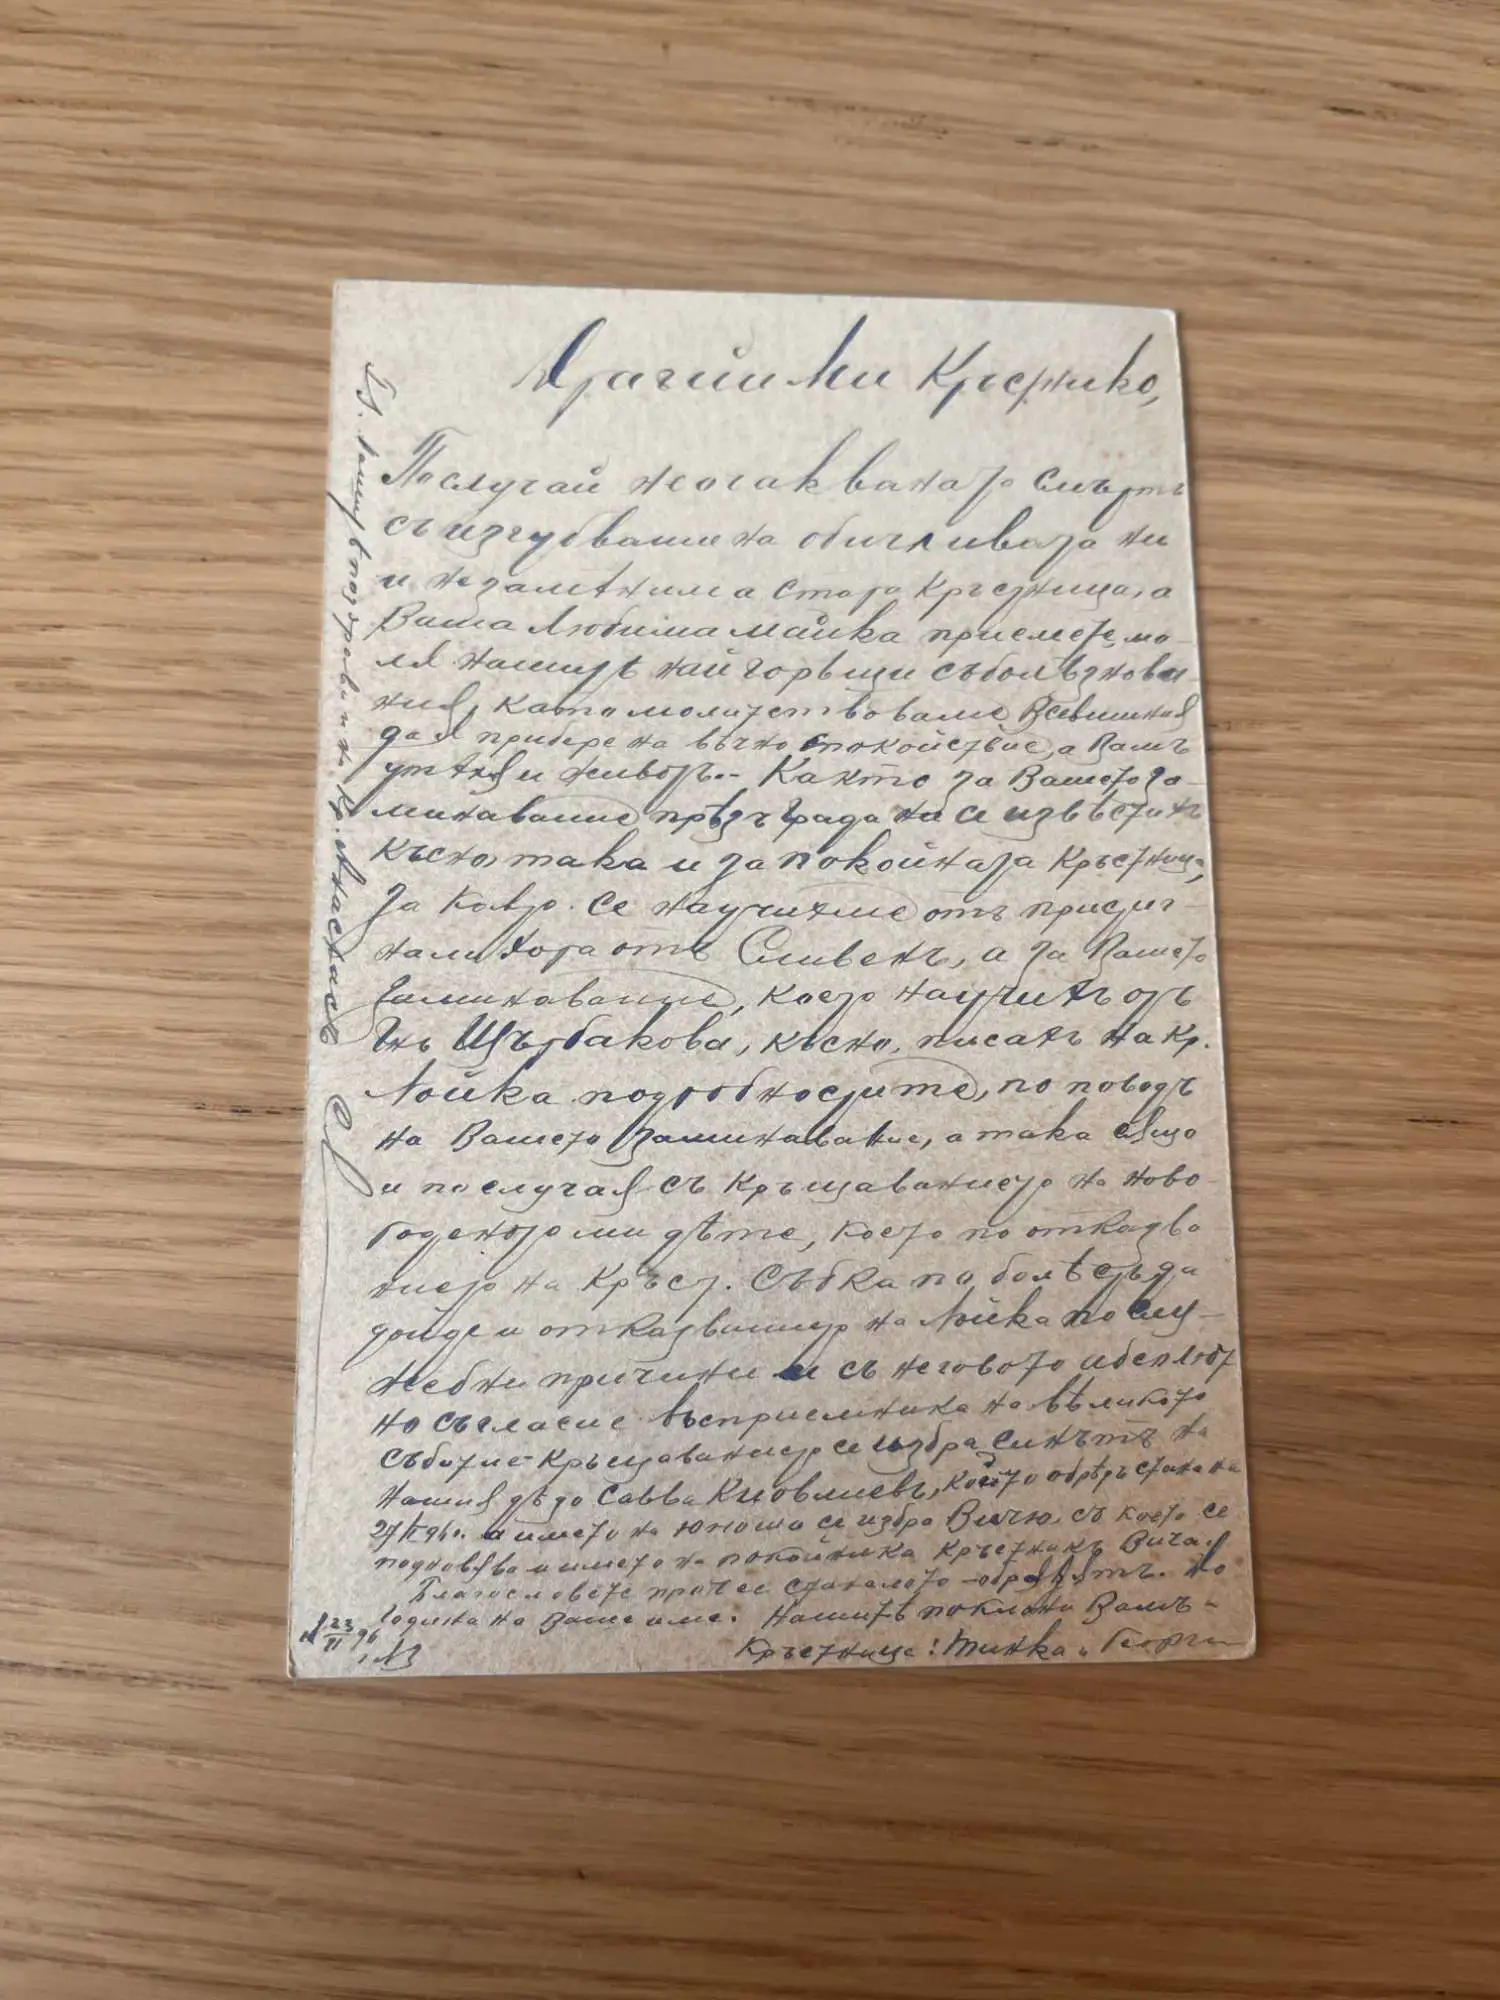 Драгий ми Кръстнико,
Послучай неочакваната смърть
съ изгубвание на обичливата ни
и незамѣнима стара Кръстница, а
Ваша Любима майка приемете, мо-
ля нашитѣ най горѣщи съболѣзнова-
ния, като молитствоваме Всевишния
да я прибере на вѣчно спокойствие, а Вамъ
утѣха и животъ.- Както за Вашето за-
минавание прѣзъ града ни се извѣстихъ
късно, така и за покойната Кръстница,
За която се научихме отъ пристиг-
нали хора отъ Сливенъ, а за Вашето
Заминавание, което научихъ отъ
Гнъ Щърбакова, късно, писахъ на Кр.
Нойка подробноститѣ, по поводъ
на Вашето заминавание, а така също
и по случая съ Кръщаванието на ново-
роденото ми дѣте, което по отказва
нието на Кръст. Събка по болѣсть да
дойде и отказвание на Нойка по слу-
жебни причини и съ неговото
но съгласие въсприемника на вѣликото
събитие - Кръщаванието се избра синътъ на
нашия дѣдо Савва, който обрѣдъ стана на
27/I 96г. а името на юноша се избра Вичю, съ което се
подновява и името на покойника Кръстникъ Вича.
Благословете прочее станалото обрядътъ. До
година на Ваше име. Нашитѣ поклони Вамъ -
Кръстнице: Минка и Георги
23/II 96
поздрави на Кр. Анастасъ